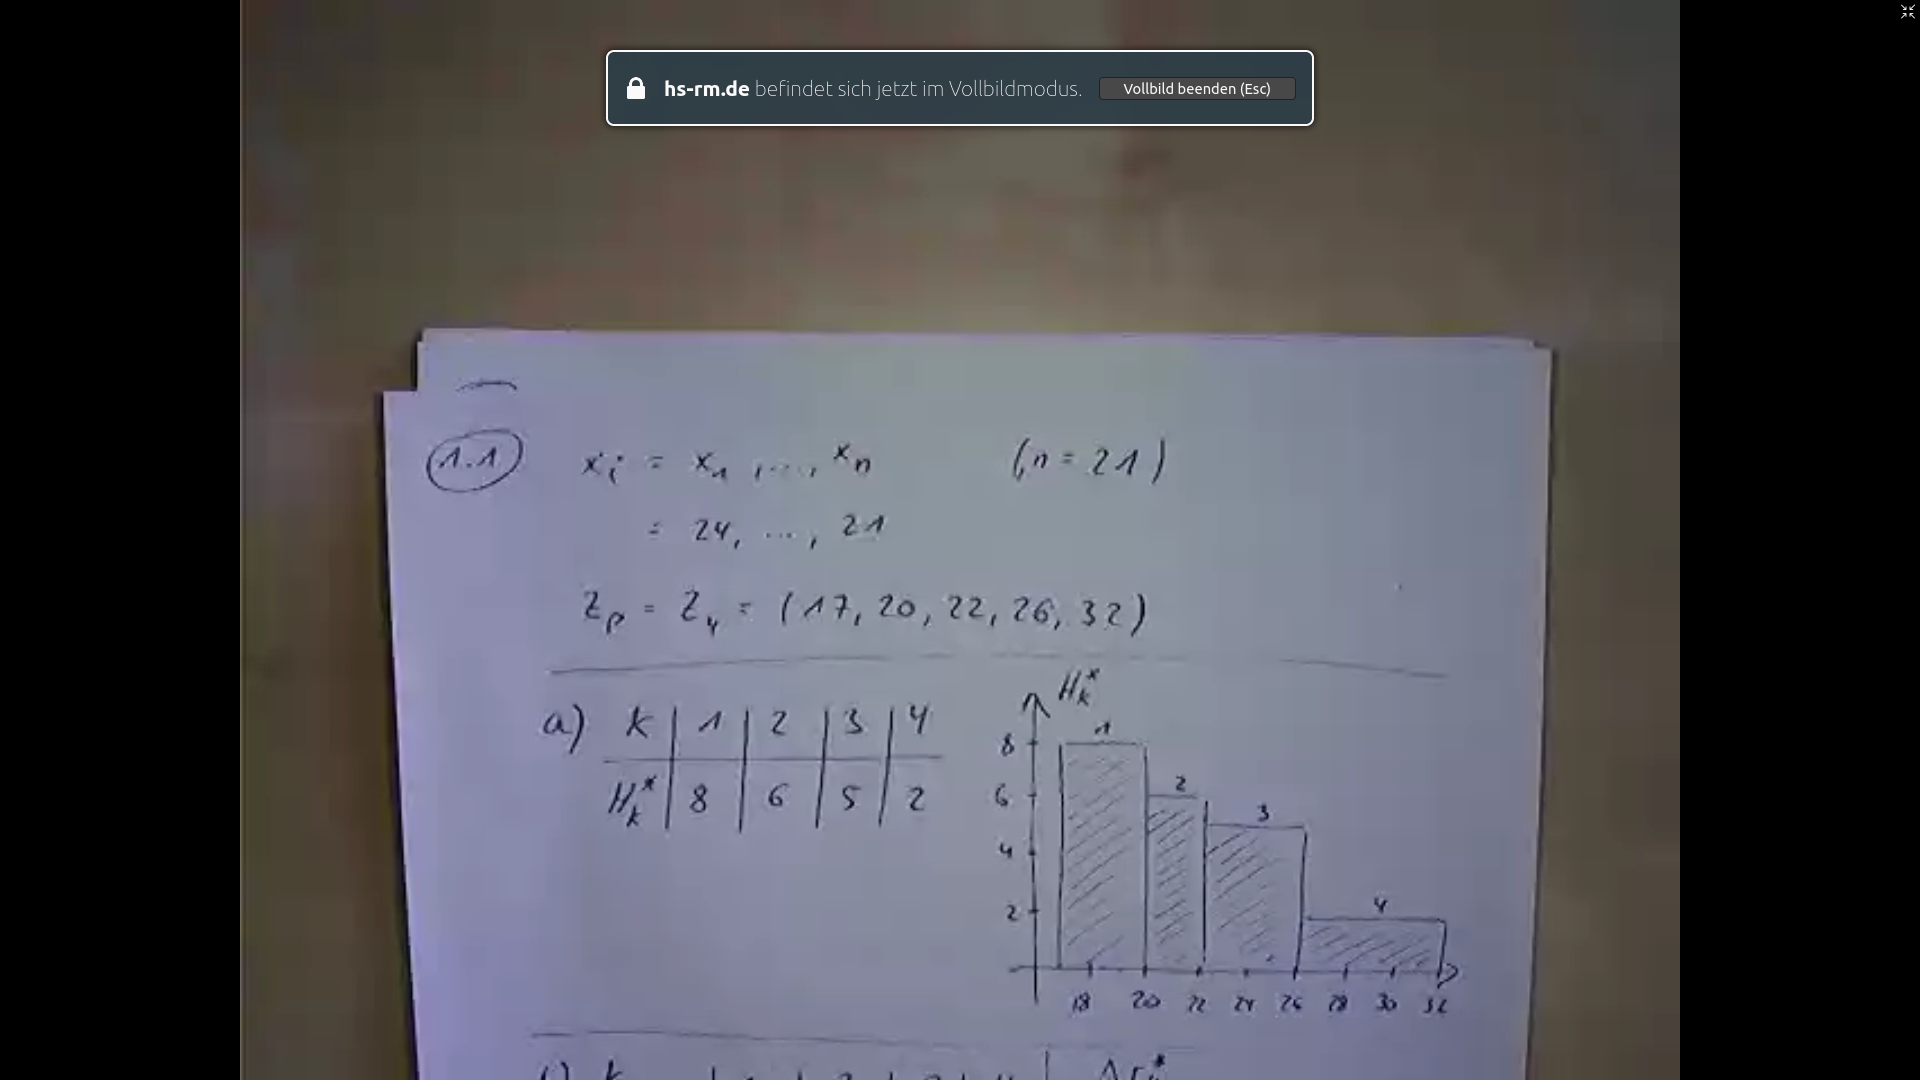 hs-rm.de befindet sich jetzt im Vollbildmodus. Vollbild beenden (Esc)
1.1 xᵢ = x₁, ..., xₙ (n = 21)
= 24, ..., 21
Zₚ = Z₄ = (17, 20, 22, 26, 32)
a) k | 1 | 2 | 3 | 4
Hₖ* | 8 | 6 | 5 | 2
Hₖ*
1
8
2
6
3
4
4
2
18 20 22 24 26 28 30 32